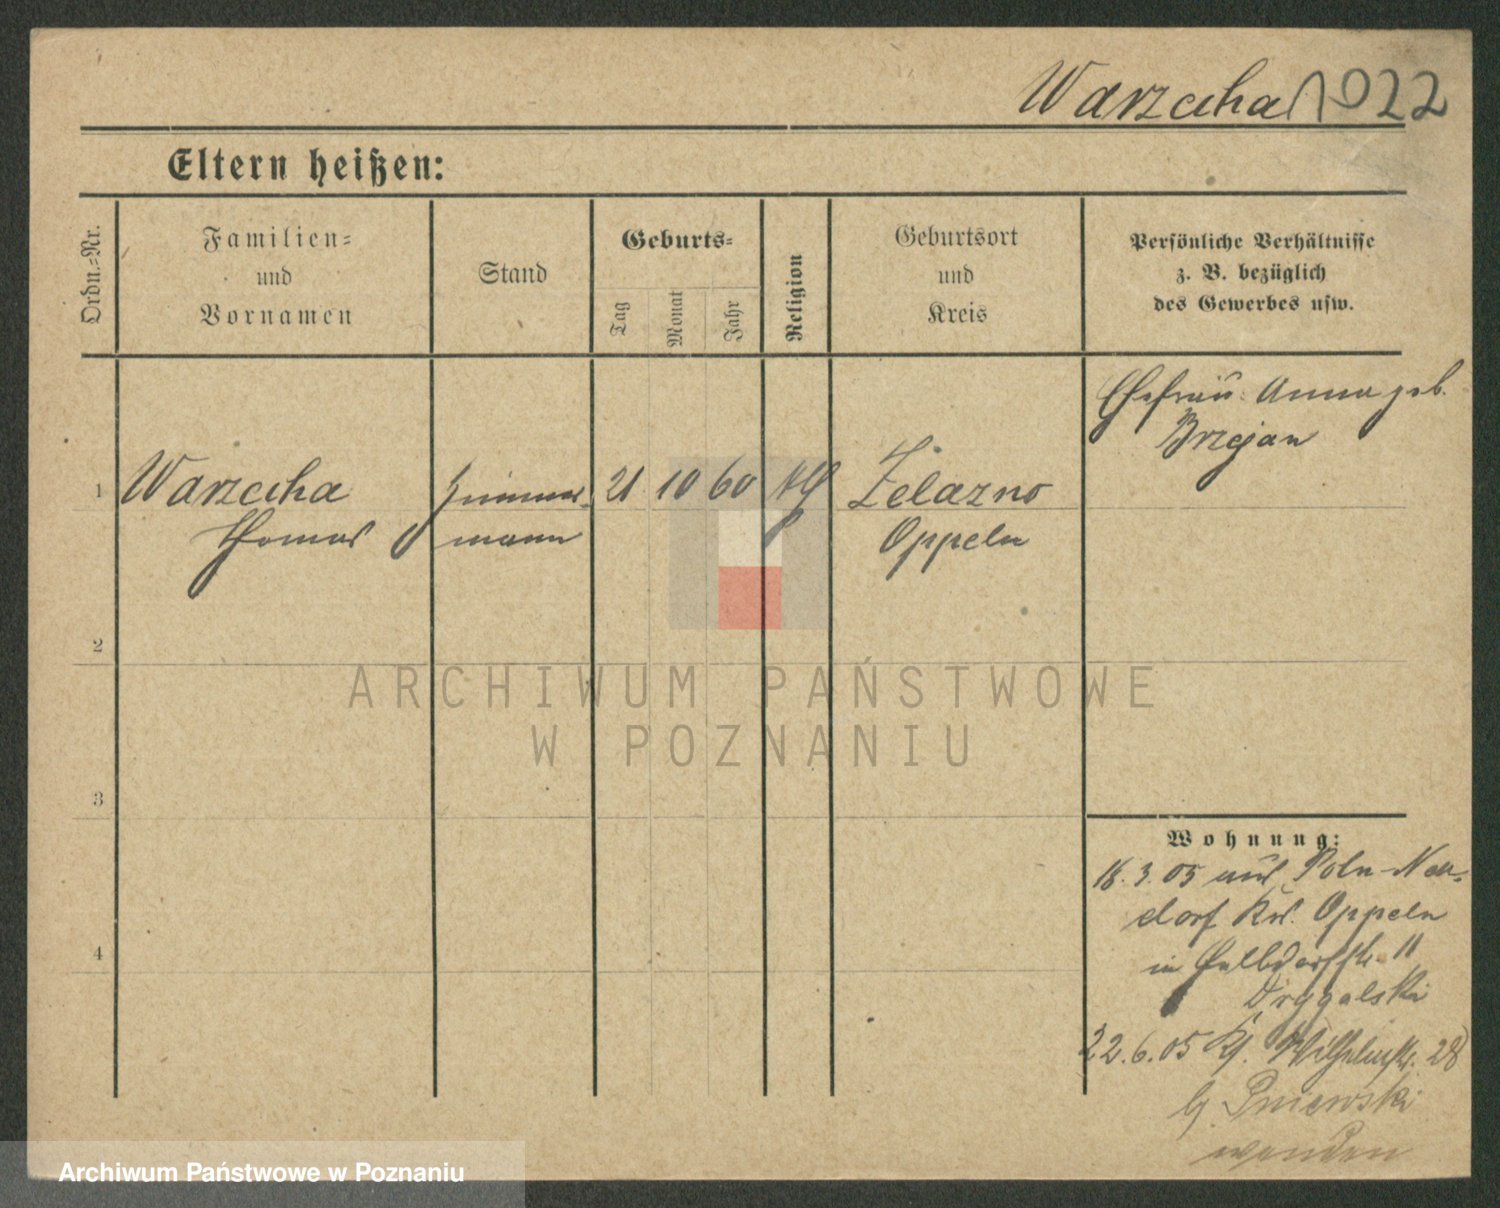 Warzecha 1022
Eltern heißen:
Ordn.-Nr.
Familien-
und
Vornamen
Stand
Geburts-
Tag
Monat
Jahr
Religion
Geburtsort
und
Kreis
Persönliche Verhältnisse
z. B. bezüglich
des Gewerbes usw.
Ehefrau: Anna geb.
Brzejan
1 Warzecha Zimmer- 21 10 60 Żelazno
Thomas mann Oppeln
2
3
4
ARCHIWUM PAŃSTWOWE
W POZNANIU
Wohnung:
18.3.05 aus Poln-Neu-
dorf Krs. Oppeln
in Halbdorfstr. 11
Drygalski
22.6.05 Wilhelmstr. 28
Pniewski
wenden
Archiwum Państwowe w Poznaniu